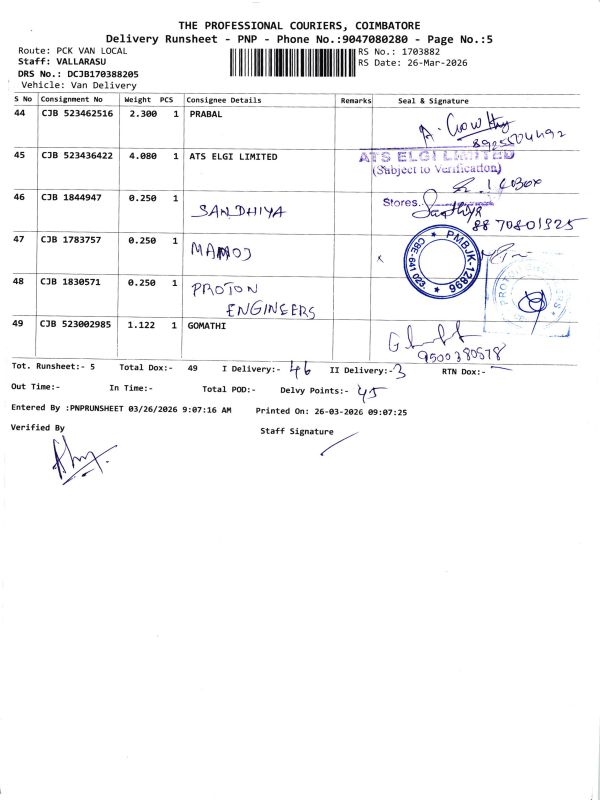 THE PROFESSIONAL COURIERS, COIMBATORE
Delivery Runsheet - PNP - Phone No.:9047080280 - Page No.:5
Route: PCK VAN LOCAL
RS No.: 1703882
Staff: VALLARASU
RS Date: 26-Mar-2026
DRS No.: DCJB170388205
Vehicle: Van Delivery
S No Consignment No Weight PCS Consignee Details Remarks Seal & Signature
44 CJB 523462516 2.300 1 PRABAL
8925504492
45 CJB 523436422 4.080 1 ATS ELGI LIMITED
ATS ELGI LIMITED
(Subject to Verification)
Stores.
46 CJB 1844947 0.250 1 SANDHIYA
8870801925
47 CJB 1783757 0.250 1 MANOJ x
PMBJK-12896
CBE-641 023.
48 CJB 1830571 0.250 1 PROTON
ENGINEERS
49 CJB 523002985 1.122 1 GOMATHI
9500380578
Tot. Runsheet:- 5 Total Dox:- 49 I Delivery:- 46 II Delivery:- 3 RTN Dox:-
Out Time:- In Time:- Total POD:- Delvy Points:- 45
Entered By :PNPRUNSHEET 03/26/2026 9:07:16 AM Printed On: 26-03-2026 09:07:25
Verified By
Staff Signature